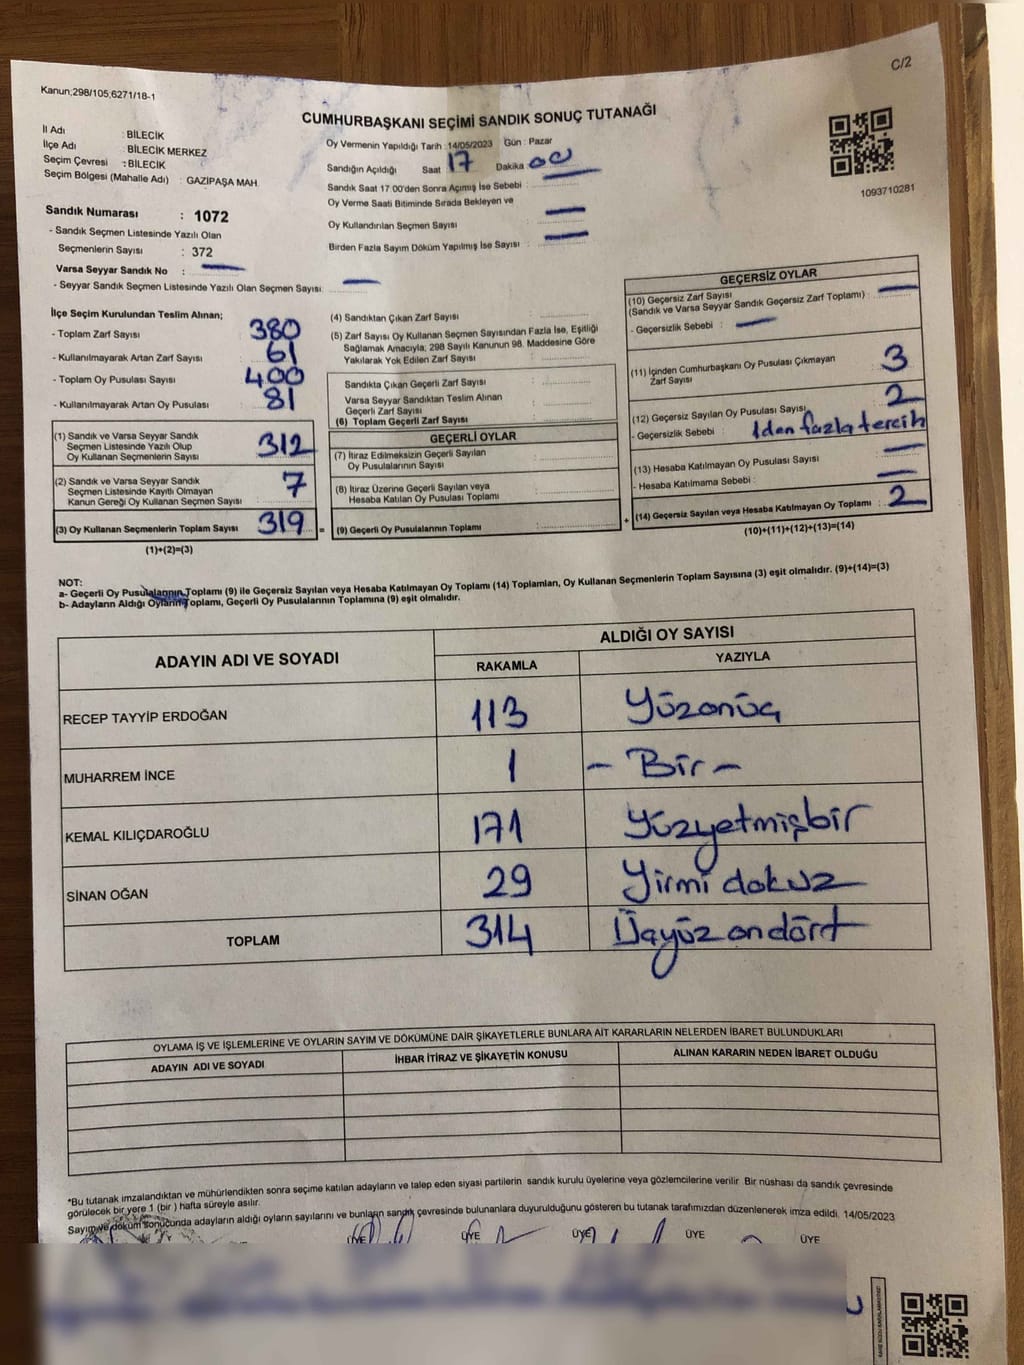 C/2
Kanun;298/105,6271/18-1
CUMHURBAŞKANI SEÇİMİ SANDIK SONUÇ TUTANAĞI
İl Adı : BİLECİK
İlçe Adı : BİLECİK MERKEZ
Seçim Çevresi : BİLECİK
Seçim Bölgesi (Mahalle Adı) : GAZİPAŞA MAH.
Sandık Numarası : 1072
- Sandık Seçmen Listesinde Yazılı Olan
Seçmenlerin Sayısı : 372
Varsa Seyyar Sandık No :
- Seyyar Sandık Seçmen Listesinde Yazılı Olan Seçmen Sayısı:
Oy Vermenin Yapıldığı Tarih : 14/05/2023 Gün : Pazar
Sandığın Açıldığı Saat 17 Dakika 00
Sandık Saat 17 00'den Sonra Açımış İse Sebebi :
Oy Verme Saati Bitiminde Sırada Bekleyen ve
Oy Kullandırılan Seçmen Sayısı :
Birden Fazla Sayım Döküm Yapılmış İse Sayısı :
1093710281
İlçe Seçim Kurulundan Teslim Alınan;
- Toplam Zarf Sayısı : 380
- Kullanılmayarak Artan Zarf Sayısı : 61
- Toplam Oy Pusulası Sayısı : 400
- Kullanılmayarak Artan Oy Pusulası : 81
(1) Sandık ve Varsa Seyyar Sandık
Seçmen Listesinde Yazılı Olup
Oy Kullanan Seçmenlerin Sayısı : 312
(2) Sandık ve Varsa Seyyar Sandık
Seçmen Listesinde Kayıtlı Olmayan
Kanun Gereği Oy Kullanan Seçmen Sayısı : 7
(3) Oy Kullanan Seçmenlerin Toplam Sayısı : 319 =
(1)+(2)=(3)
(4) Sandıktan Çıkan Zarf Sayısı :
(5) Zarf Sayısı Oy Kullanan Seçmen Sayısından Fazla İse, Eşitliği
Sağlamak Amacıyla, 298 Sayılı Kanunun 98. Maddesine Göre
Yakılarak Yok Edilen Zarf Sayısı :
Sandıkta Çıkan Geçerli Zarf Sayısı :
Varsa Seyyar Sandıktan Teslim Alınan
Geçerli Zarf Sayısı :
(6) Toplam Geçerli Zarf Sayısı :
GEÇERLİ OYLAR
(7) İtiraz Edilmeksizin Geçerli Sayılan
Oy Pusulalarının Sayısı :
(8) İtiraz Üzerine Geçerli Sayılan veya
Hesaba Katılan Oy Pusulası Toplamı :
(9) Geçerli Oy Pusulalarının Toplamı : +
GEÇERSİZ OYLAR
(10) Geçersiz Zarf Sayısı
(Sandık ve Varsa Seyyar Sandık Geçersiz Zarf Toplamı) :
- Geçersizlik Sebebi :
(11) İçinden Cumhurbaşkanı Oy Pusulası Çıkmayan
Zarf Sayısı : 3
(12) Geçersiz Sayılan Oy Pusulası Sayısı : 2
- Geçersizlik Sebebi : 1 den fazla tercih
(13) Hesaba Katılmayan Oy Pusulası Sayısı :
- Hesaba Katılmama Sebebi :
(14) Geçersiz Sayılan veya Hesaba Katılmayan Oy Toplamı : 2
(10)+(11)+(12)+(13)=(14)
NOT:
a- Geçerli Oy Pusulalarının Toplamı (9) ile Geçersiz Sayılan veya Hesaba Katılmayan Oy Toplamı (14) Toplamları, Oy Kullanan Seçmenlerin Toplam Sayısına (3) eşit olmalıdır. (9)+(14)=(3)
b- Adayların Aldığı Oyların Toplamı, Geçerli Oy Pusulalarının Toplamına (9) eşit olmalıdır.
ADAYIN ADI VE SOYADI
ALDIĞI OY SAYISI
RAKAMLA YAZIYLA
RECEP TAYYİP ERDOĞAN 113 Yüzonüç
MUHARREM İNCE 1 - Bir -
KEMAL KILIÇDAROĞLU 171 Yüzyetmişbir
SİNAN OĞAN 29 Yirmi dokuz
TOPLAM 314 Üçyüz ondört
OYLAMA İŞ VE İŞLEMLERİNE VE OYLARIN SAYIM VE DÖKÜMÜNE DAİR ŞİKAYETLERLE BUNLARA AİT KARARLARIN NELERDEN İBARET BULUNDUKLARI
ADAYIN ADI VE SOYADI İHBAR İTİRAZ VE ŞİKAYETİN KONUSU ALINAN KARARIN NEDEN İBARET OLDUĞU
*Bu tutanak imzalandıktan ve mühürlendikten sonra seçime katılan adayların ve talep eden siyasi partilerin sandık kurulu üyelerine veya gözlemcilerine verilir. Bir nüshası da sandık çevresinde
görülecek bir yere 1 (bir ) hafta süreyle asılır.
Sayım ve döküm sonucunda adayların aldığı oyların sayılarını ve bunların sandık çevresinde bulunanlara duyurulduğunu gösteren bu tutanak tarafımızdan düzenlenerek imza edildi. 14/05/2023
ÜYE ÜYE ÜYE ÜYE ÜYE